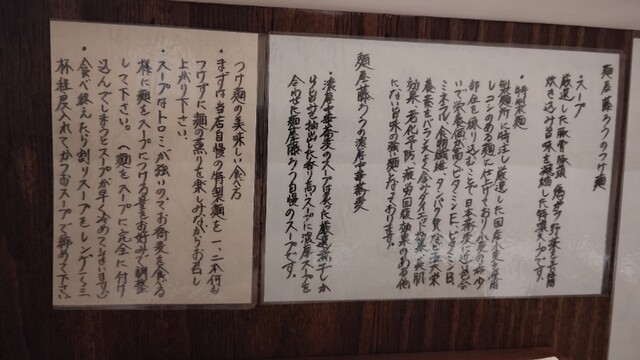 麺屋藤しろのつけ麺
・スープ
厳選した豚骨豚頭、鶏ガラ野菜を長時間
炊き込み旨味を凝縮した特製スープです。
・特製麺
製麺所に特注し厳選した国産小麦を使用
しコシのある麺に仕上げており小麦の希少
部位を練り込むことで日本蕎麦に近い色合
いで栄養価が高くビタミンE、ビタミンB、
ミネラル、食物繊維、タンパク質など五大栄
養素をバランスよく含みダイエット効果、美肌
効果、老化予防、疲労回復効果のある他
にない旨味の強い麺となっております。
麺屋藤しろの濃厚中華蕎麦
・濃厚中華蕎麦のスープは炊いた厳選煮干しか
ら旨みを抽出した香り高いスープに濃厚スープを
合わせた麺屋藤しろ自慢のスープです。
つけ麺の美味しい食べ方
・まずは当店自慢の特製麺を一、二本何も
つけずに麺の薫りを楽しみながらお召し
上がり下さい。
・スープはトロミが強いのでお蕎麦を食べる
様に麺をスープにつける量をお好みで調整
して下さい。(麺をスープに完全に付け
込んでしまうとスープが早く冷めてしまいます)
・食べ終えたら割りスープをレンゲ二〜三
杯程度入れてかつおスープで締めて下さい